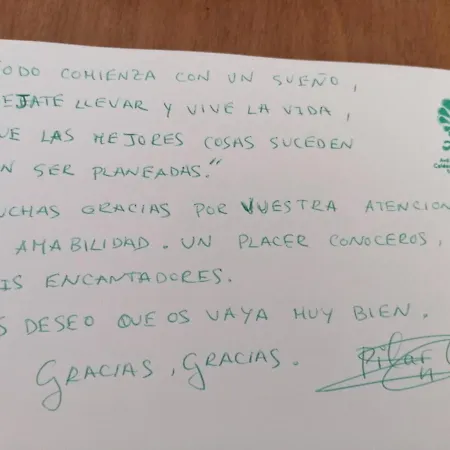 ODO COMIENZA CON UN SUEÑO,
EJATE LLEVAR Y VIVE LA VIDA,
UE LAS MEJORES COSAS SUCEDEN
N SER PLANEADAS."
UCHAS GRACIAS POR VUESTRA ATENCION
AMABILIDAD. UN PLACER CONOCEROS,
IS ENCANTADORES.
S DESEO QUE OS VAYA MUY BIEN.
GRACIAS, GRACIAS.
Pilar